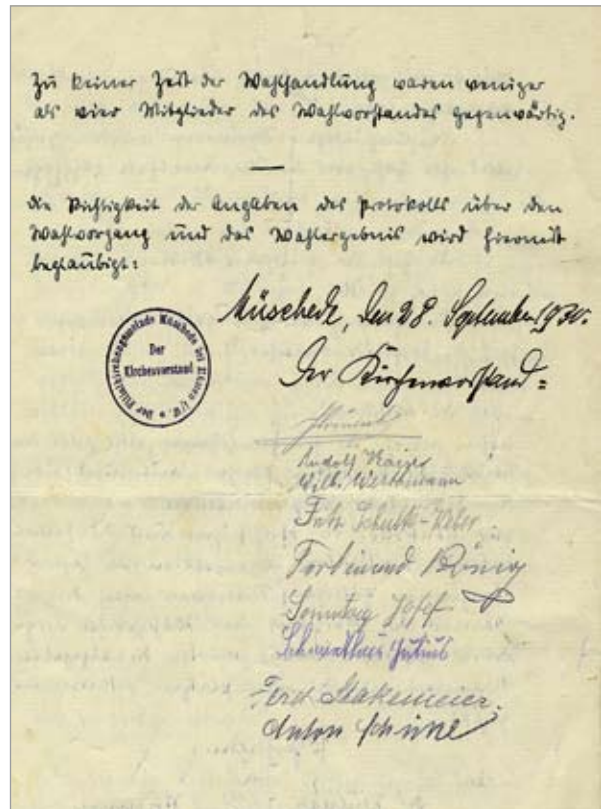 Zu keiner Zeit der Wahlhandlung waren weniger
als vier Mitglieder des Wahlvorstandes gegenwärtig.
die Richtigkeit der Angaben des Protokolls über den
Wahlvorgang und das Wahlergebnis wird hiermit
beglaubigt:
Müschede, den 28. September 1930.
Der Kirchenvorstand
Der Kirchenvorstand =
Rudolf
Wilh. Werthmann
Schulte-Weber
Ferdinand König
Sonntag Josef
Julius
Ferd. Stakemeier.
Anton